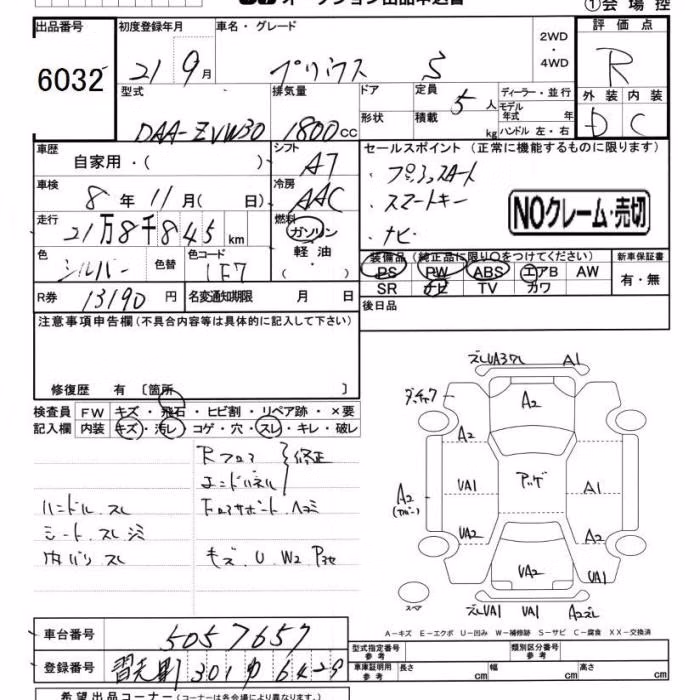 オークション出品申込書 ①会場控
出品番号 初度登録年月 車名・グレード 2WD ・ 4WD 評価点
6032 21 9月 プリウス S R
型式 排気量 ドア 定員 5人 ディーラー・並行 外装 内装
形状 積載 kg モデル年式 年 ハンドル 左・右
DAA-ZVW30 1800cc D C
車歴 自家用・( ) シフト A7 セールスポイント(正常に機能するものに限ります)
・プッシュスタート
車検 8年11月( 日) 冷房 AAC ・スマートキー
NOクレーム・売切
走行 21万8千845km 燃料 ガソリン・軽油・( ) ・ナビ
色 シルバー 色替 色コード 1F7 装備品(純正品に限り○をつけてください) 新車保証書
PS PW ABS エアB AW 有・無
SR ナビ TV カワ
R券 13190円 名変通知期限 月 日 後日品
注意事項申告欄(不具合内容等は具体的に記入して下さい)
修復歴 有 〔箇所 〕
検査員 FW キズ・飛石・ヒビ割・リペア跡・×要
記入欄 内装 キズ・汚レ・コゲ・穴・スレ・キレ・破レ
Rフロア 修正
エンドパネル
ハンドル スレ
シート スレ シミ
内バリ スレ
キズ U W2
ズレUA3 A1
A2
A2
UA1
A1
A2
UA2
A2
VA2
UA1
スペア
ズレUA1 UA1 A2ズレ
A-キズ E-エクボ U-凹み W-補修跡 S-サビ C-腐食 XX-交換済
車台番号 5057657
型式指定番号 参考 類別区分番号 参考
登録番号 習志野 301 6429
車庫証明用 参考 長さ cm 幅 cm 高さ cm
希望出品コーナー(コーナーは各会場により異なります。)